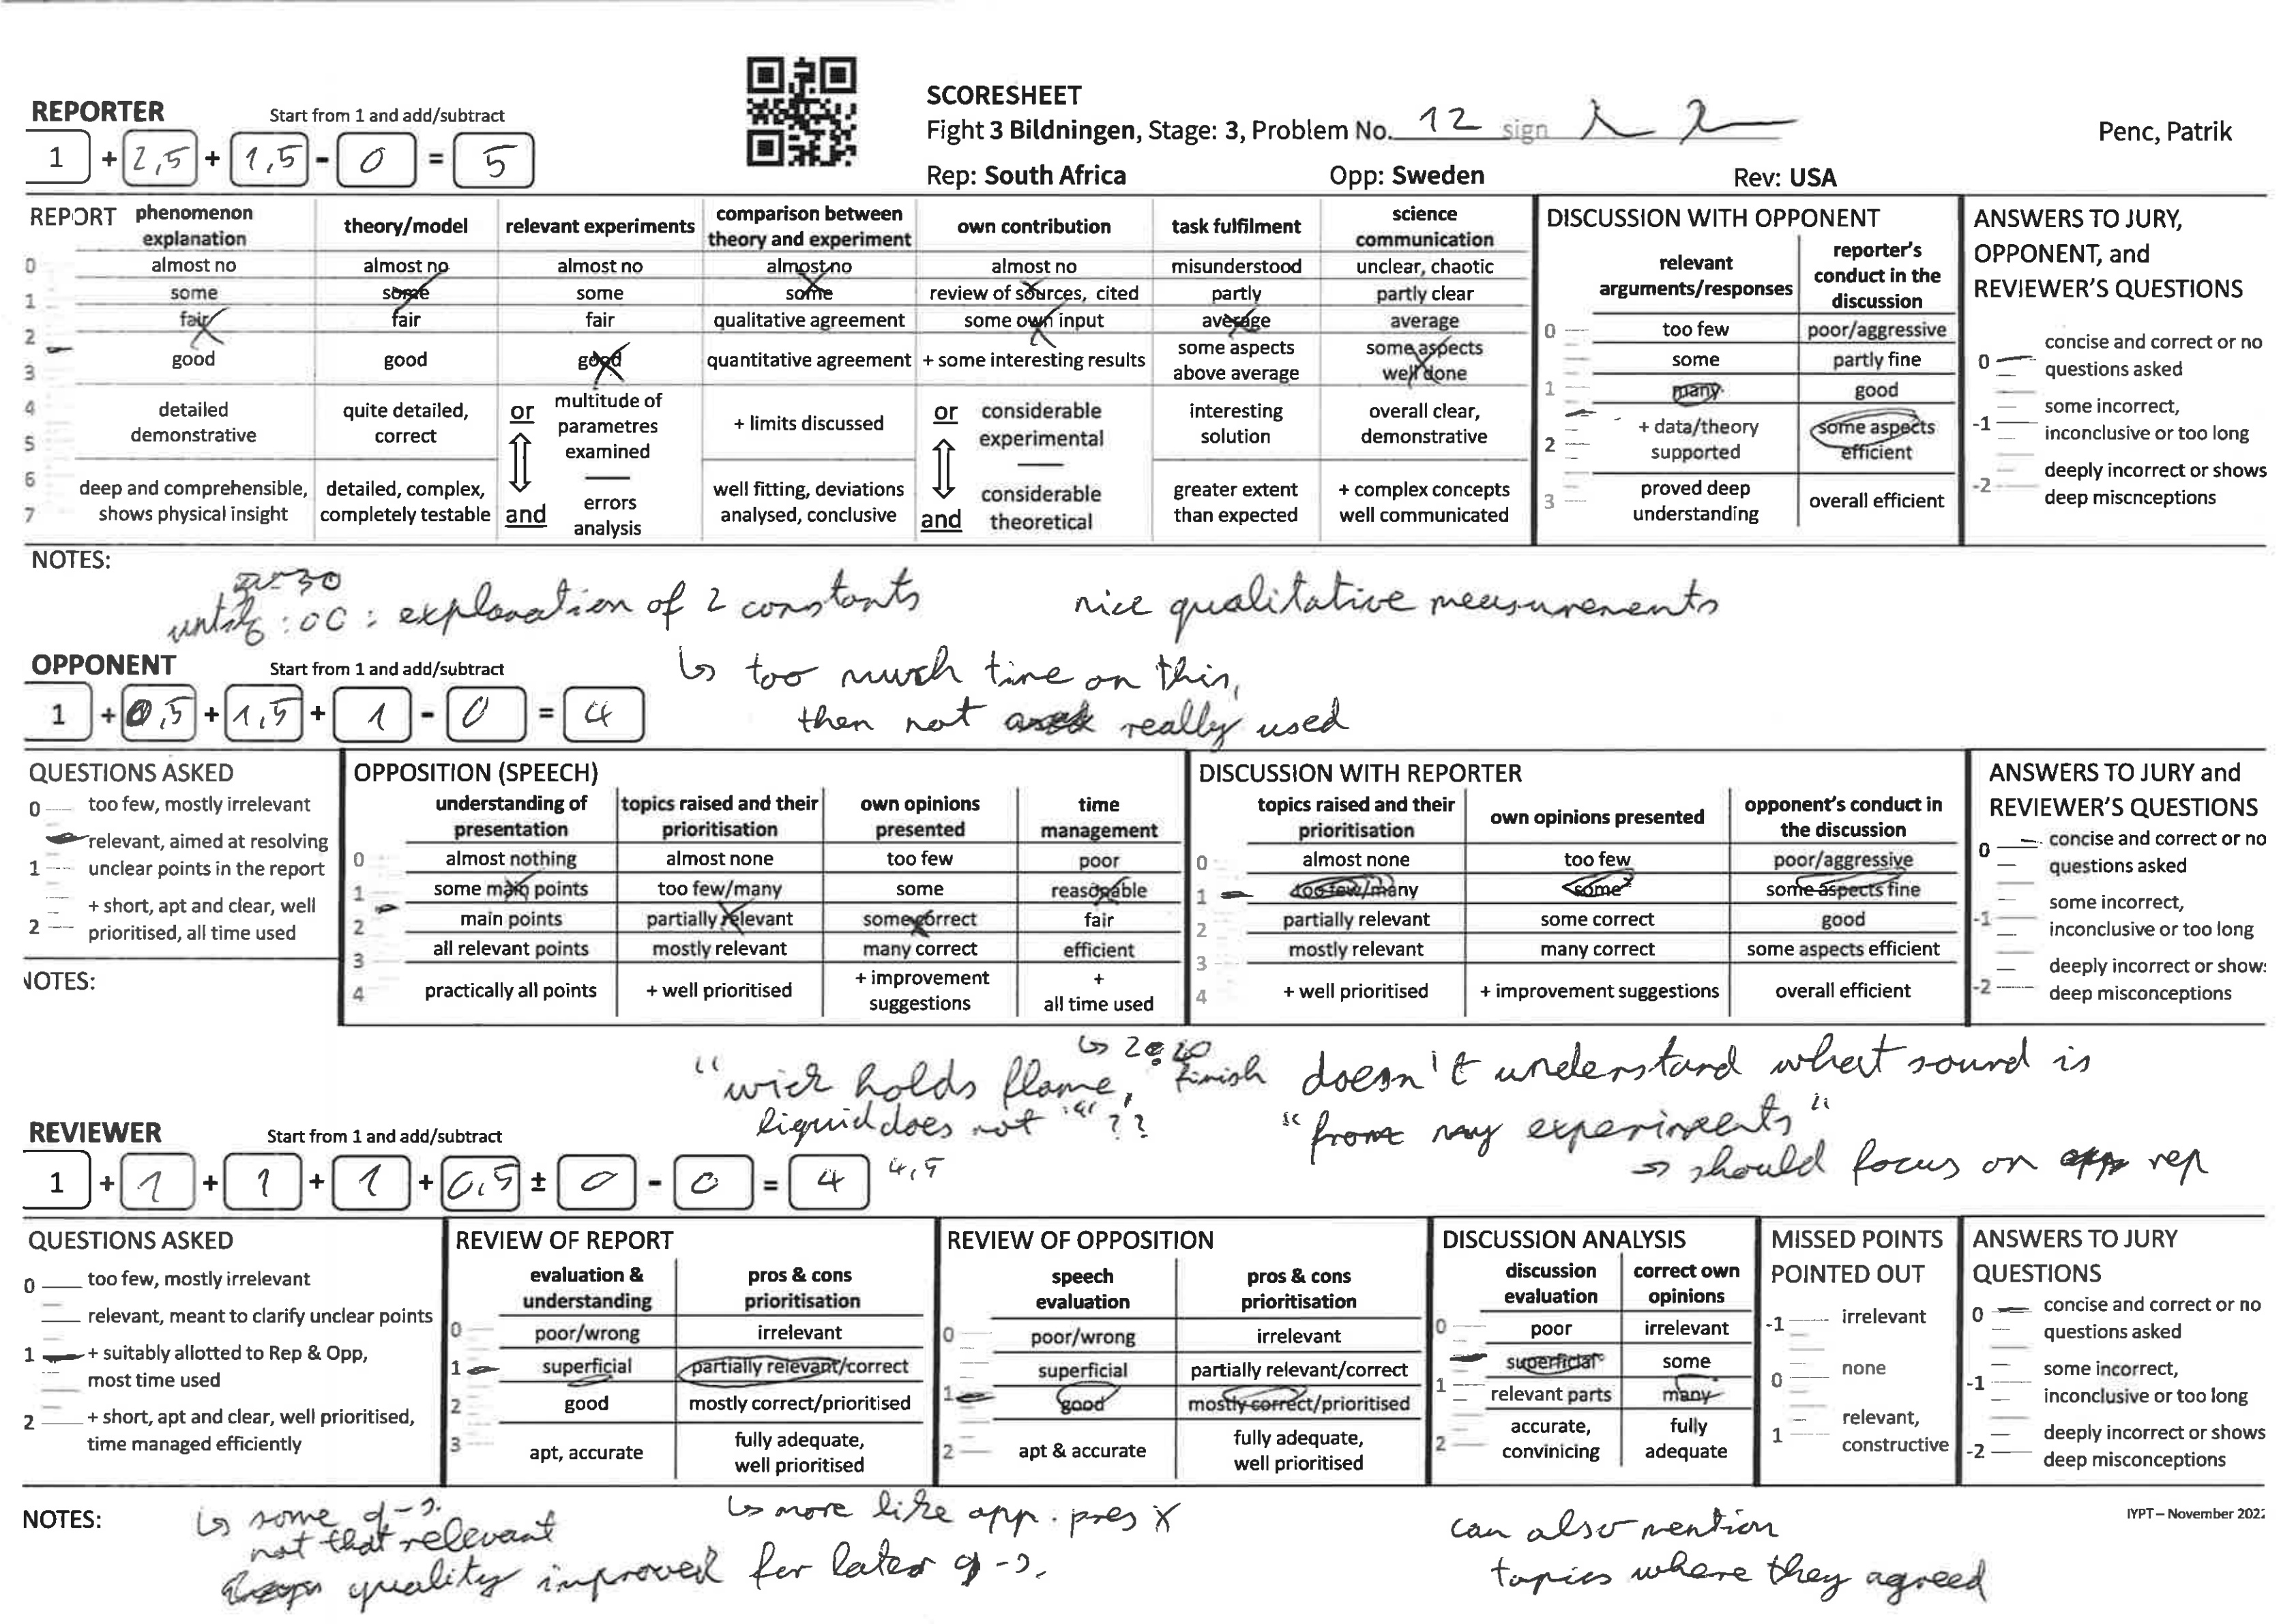 REPORTER Start from 1 and add/subtract
1 + 2,5 + 1,5 - 0 = 5
SCORESHEET
Fight 3 Bildningen, Stage: 3, Problem No. 12 sign
Penc, Patrik
Rep: South Africa Opp: Sweden Rev: USA
REPORT phenomenon explanation theory/model relevant experiments comparison between theory and experiment own contribution task fulfilment science communication
0 almost no almost no almost no almost no almost no misunderstood unclear, chaotic
1 some some some some review of sources, cited partly partly clear
2 fair fair fair qualitative agreement some own input average average
3 good good good quantitative agreement + some interesting results some aspects above average some aspects well done
4 5 detailed demonstrative quite detailed, correct or multitude of parametres examined + limits discussed or considerable experimental interesting solution overall clear, demonstrative
6 7 deep and comprehensible, shows physical insight detailed, complex, completely testable and errors analysis well fitting, deviations analysed, conclusive and considerable theoretical greater extent than expected + complex concepts well communicated
DISCUSSION WITH OPPONENT
relevant arguments/responses reporter's conduct in the discussion
0 too few poor/aggressive
some partly fine
1 many good
2 + data/theory supported some aspects efficient
3 proved deep understanding overall efficient
ANSWERS TO JURY,
OPPONENT, and
REVIEWER'S QUESTIONS
0 concise and correct or no questions asked
-1 some incorrect, inconclusive or too long
-2 deeply incorrect or shows deep miscnceptions
NOTES:
explanation of 2 constants
nice qualitative measurements
too much time on this,
then not really used
OPPONENT Start from 1 and add/subtract
1 + 0,5 + 1,5 + 1 - 0 = 4
QUESTIONS ASKED
0 too few, mostly irrelevant
relevant, aimed at resolving
1 unclear points in the report
+ short, apt and clear, well
2 prioritised, all time used
NOTES:
OPPOSITION (SPEECH)
understanding of presentation topics raised and their prioritisation own opinions presented time management
0 almost nothing almost none too few poor
1 some main points too few/many some reasonable
2 main points partially relevant some correct fair
3 all relevant points mostly relevant many correct efficient
4 practically all points + well prioritised + improvement suggestions + all time used
DISCUSSION WITH REPORTER
topics raised and their prioritisation own opinions presented opponent's conduct in the discussion
0 almost none too few poor/aggressive
1 too few/many some some aspects fine
2 partially relevant some correct good
3 mostly relevant many correct some aspects efficient
4 + well prioritised + improvement suggestions overall efficient
ANSWERS TO JURY and
REVIEWER'S QUESTIONS
0 concise and correct or no questions asked
-1 some incorrect, inconclusive or too long
-2 deeply incorrect or show deep misconceptions
"wick holds flame,
liquid does not" ??
finish
doesn't understand what sound is
"from my experiments"
⇒ should focus on rep
REVIEWER Start from 1 and add/subtract
1 + 1 + 1 + 1 + 0,5 ± 0 - 0 = 4 4,5
QUESTIONS ASKED
0 too few, mostly irrelevant
relevant, meant to clarify unclear points
1 + suitably allotted to Rep & Opp,
most time used
2 + short, apt and clear, well prioritised,
time managed efficiently
REVIEW OF REPORT
evaluation & understanding pros & cons prioritisation
0 poor/wrong irrelevant
1 superficial partially relevant/correct
2 good mostly correct/prioritised
3 apt, accurate fully adequate, well prioritised
REVIEW OF OPPOSITION
speech evaluation pros & cons prioritisation
0 poor/wrong irrelevant
superficial partially relevant/correct
1 good mostly correct/prioritised
2 apt & accurate fully adequate, well prioritised
DISCUSSION ANALYSIS
discussion evaluation correct own opinions
0 poor irrelevant
superficial some
1 relevant parts many
2 accurate, convinicing fully adequate
MISSED POINTS
POINTED OUT
-1 irrelevant
0 none
1 relevant, constructive
ANSWERS TO JURY
QUESTIONS
0 concise and correct or no questions asked
-1 some incorrect, inconclusive or too long
-2 deeply incorrect or shows deep misconceptions
NOTES:
some q-s.
not that relevant
quality improved for later q-s.
more like opp. pres
can also mention
topics where they agreed
IYPT – November 202